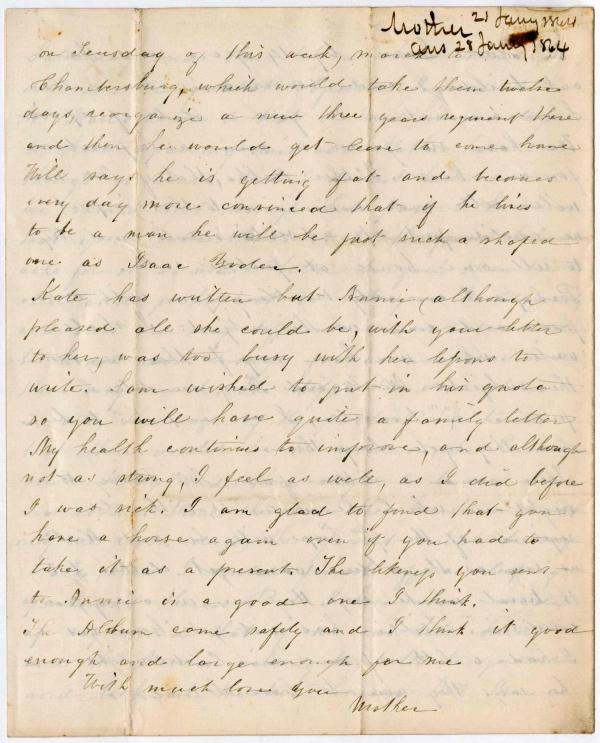 Mother 21 Jany 1864
ans 28 Jany 1864
on Teusday of this week, march to
Chambersburg, which would take them twelve
days, reorganize a new three years regiment there
and then he would get leave to come home
Will says he is getting fat and becomes
every day more convinced that if he lives
to be a man he will be just such a shaped
one as Isaac
Kate has written but Annie, although
pleased all she could be, with your letter
to her, was too busy with her lessons to
write. Sam wished to put in his quota
so you will have quite a family letter
My health continues to improve, and although
not as strong, I feel as well, as I did before
I was sick. I am glad to find that you
have a horse again even if you had to
take it as a present. The likeness you sent
to Annie is a good one I think.
The Album came safely and I think it good
enough and large enough for me
With much love your
Mother